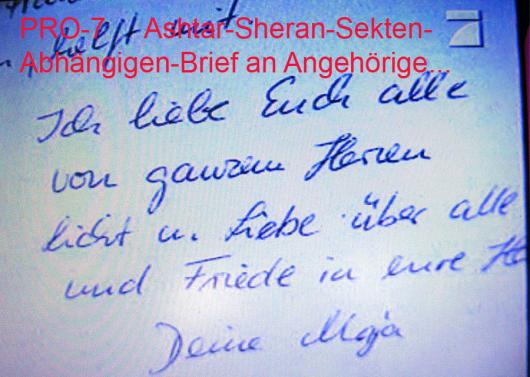 PRO-7 Ashtar-Sheran-Sekten-
Abhängigen-Brief an Angehörige...
helft mit.
Ich liebe Euch alle
von ganzem Herzen
licht u. Liebe über alle
und Friede in eure He
Deine Maja